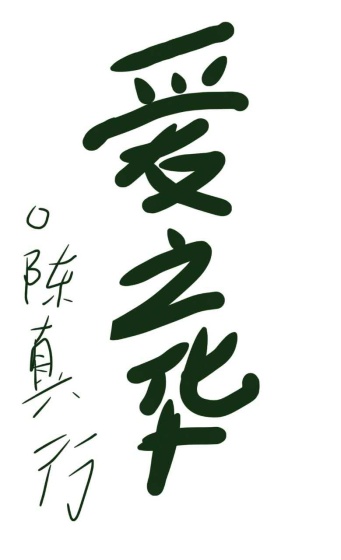 爱之华
○陈真行